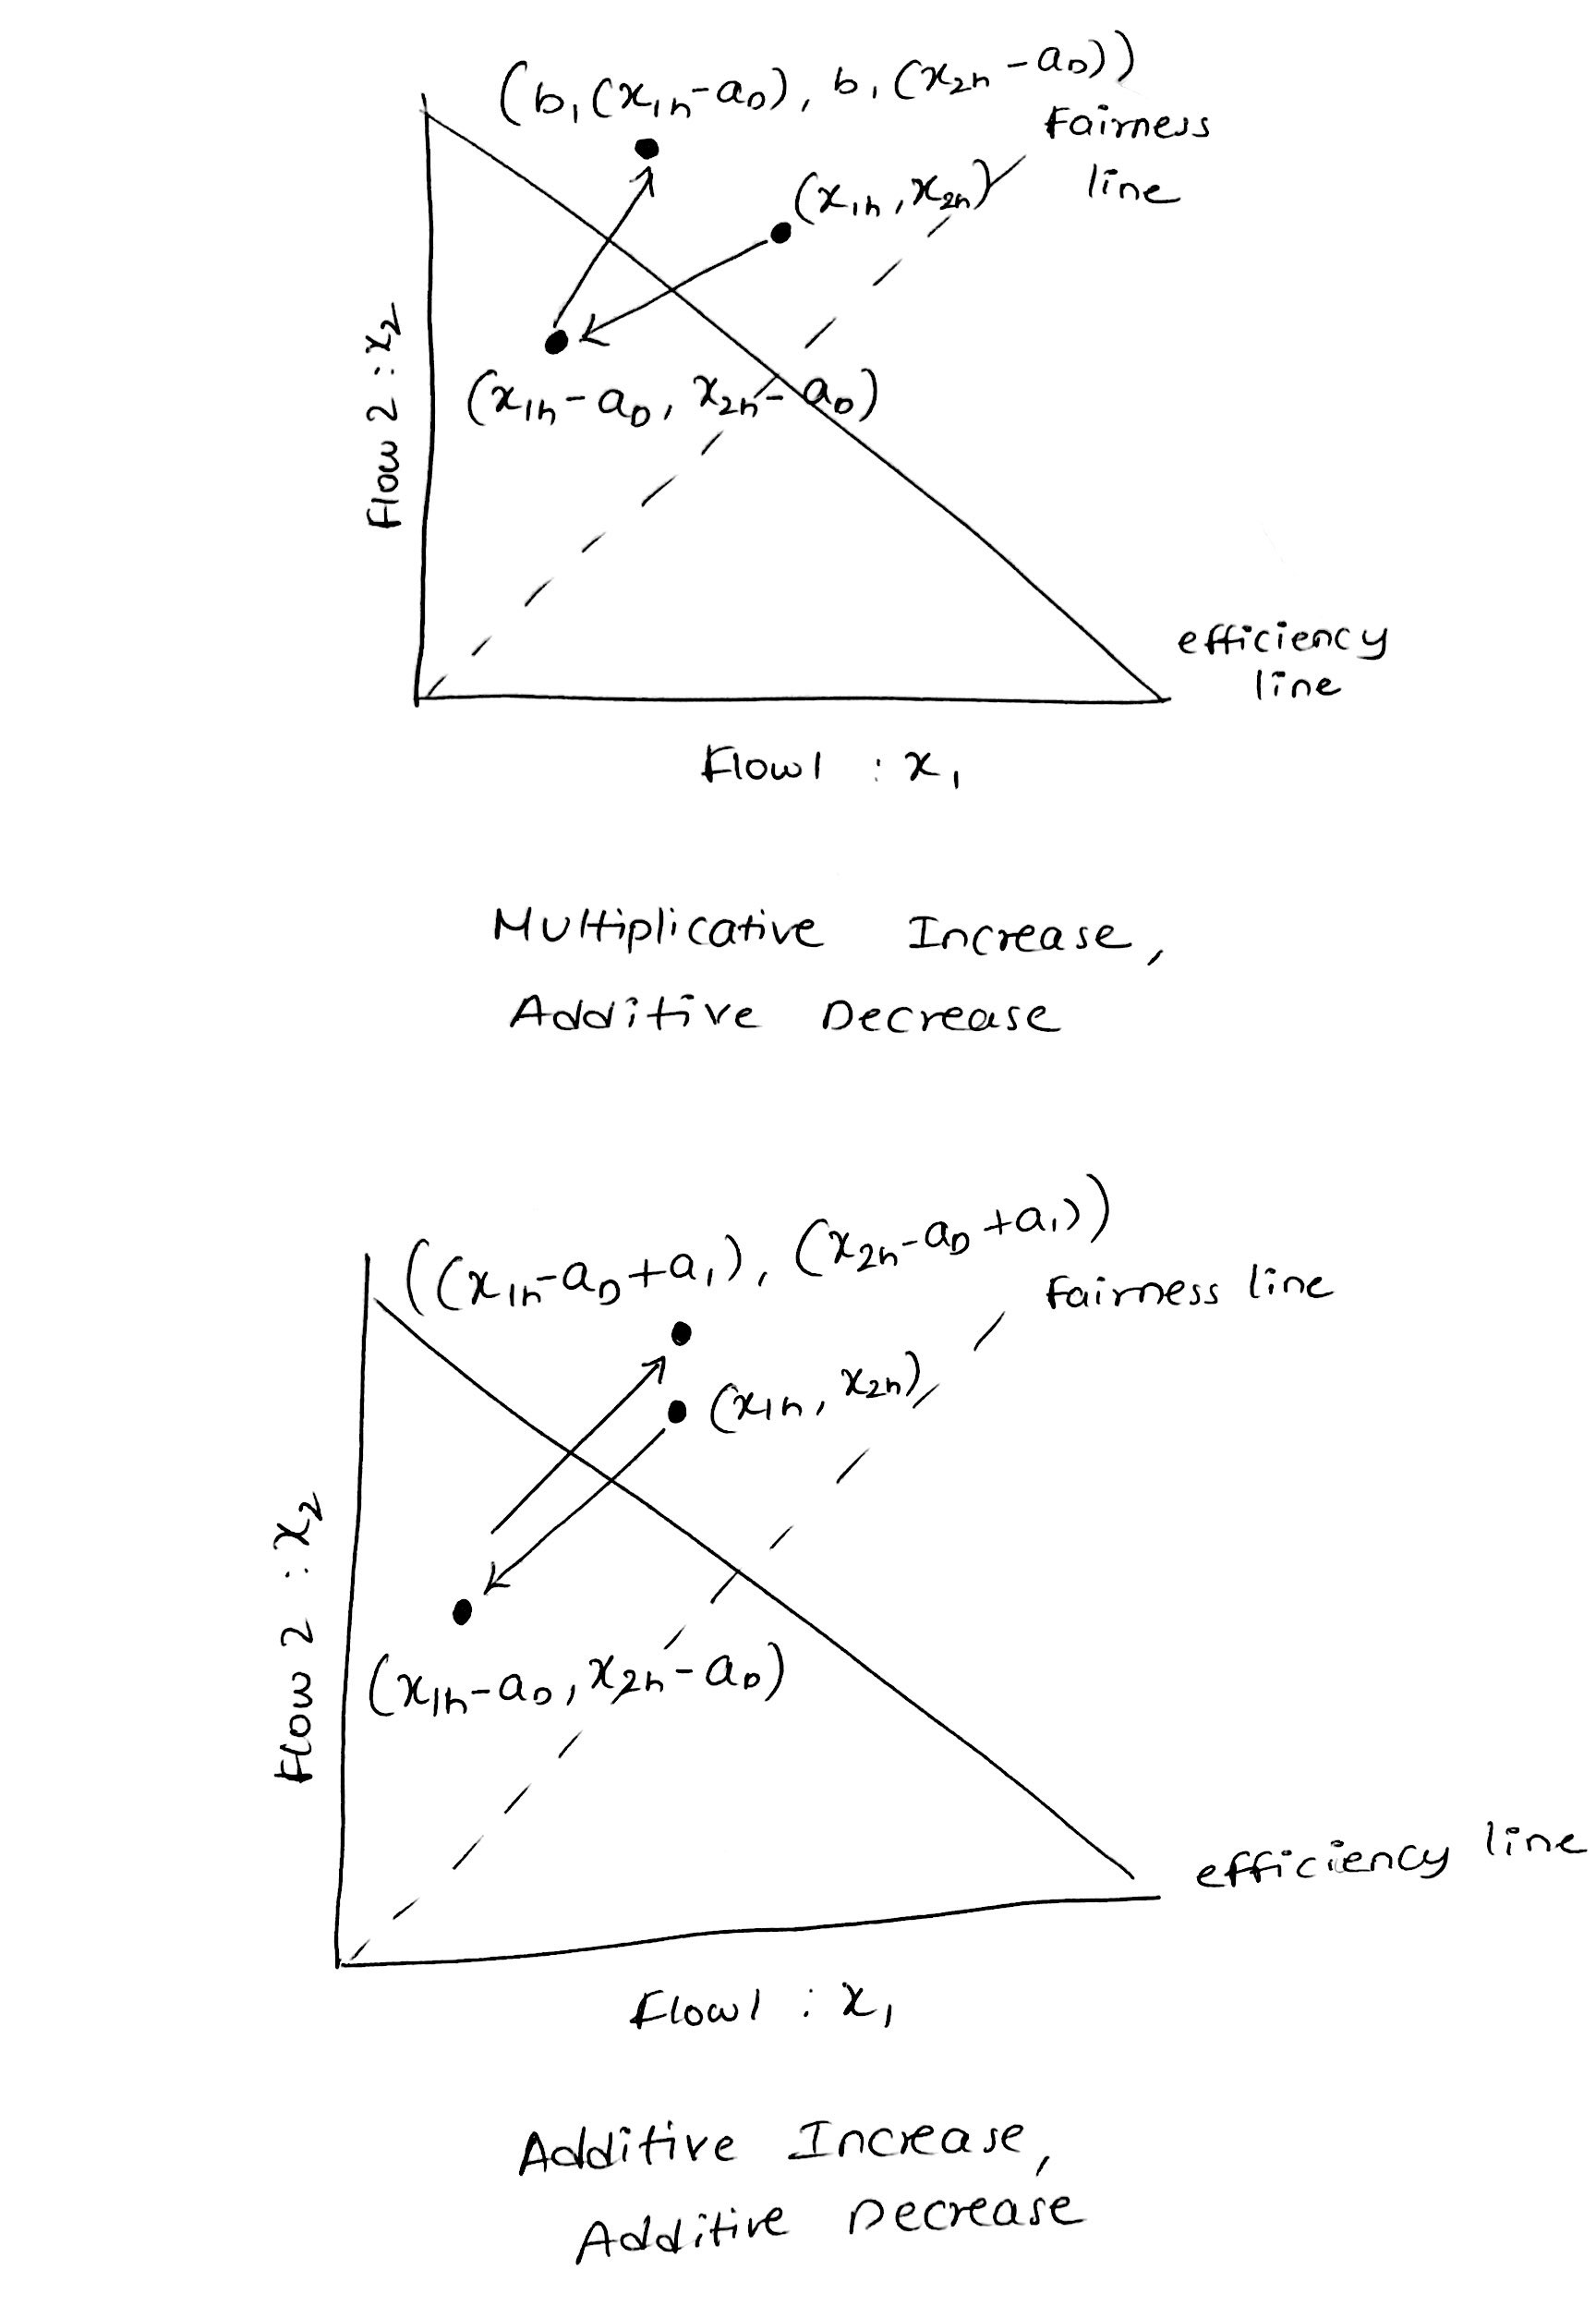 (b₁(x₁ₕ-a_D), b₁(x₂ₕ-a_D))
Fairness
line
(x₁ₕ,x₂ₕ)
Flow 2 : x₂
(x₁ₕ-a_D, x₂ₕ-a_D)
efficiency
line
Flow1 : x₁
Multiplicative Increase,
Additive Decrease
((x₁ₕ-a_D+a₁), (x₂ₕ-a_D+a₁))
Fairness line
(x₁ₕ, x₂ₕ)
Flow 2 : x₂
(x₁ₕ-a_D, x₂ₕ-a_D)
efficiency line
Flow1 : x₁
Additive Increase,
Additive Decrease